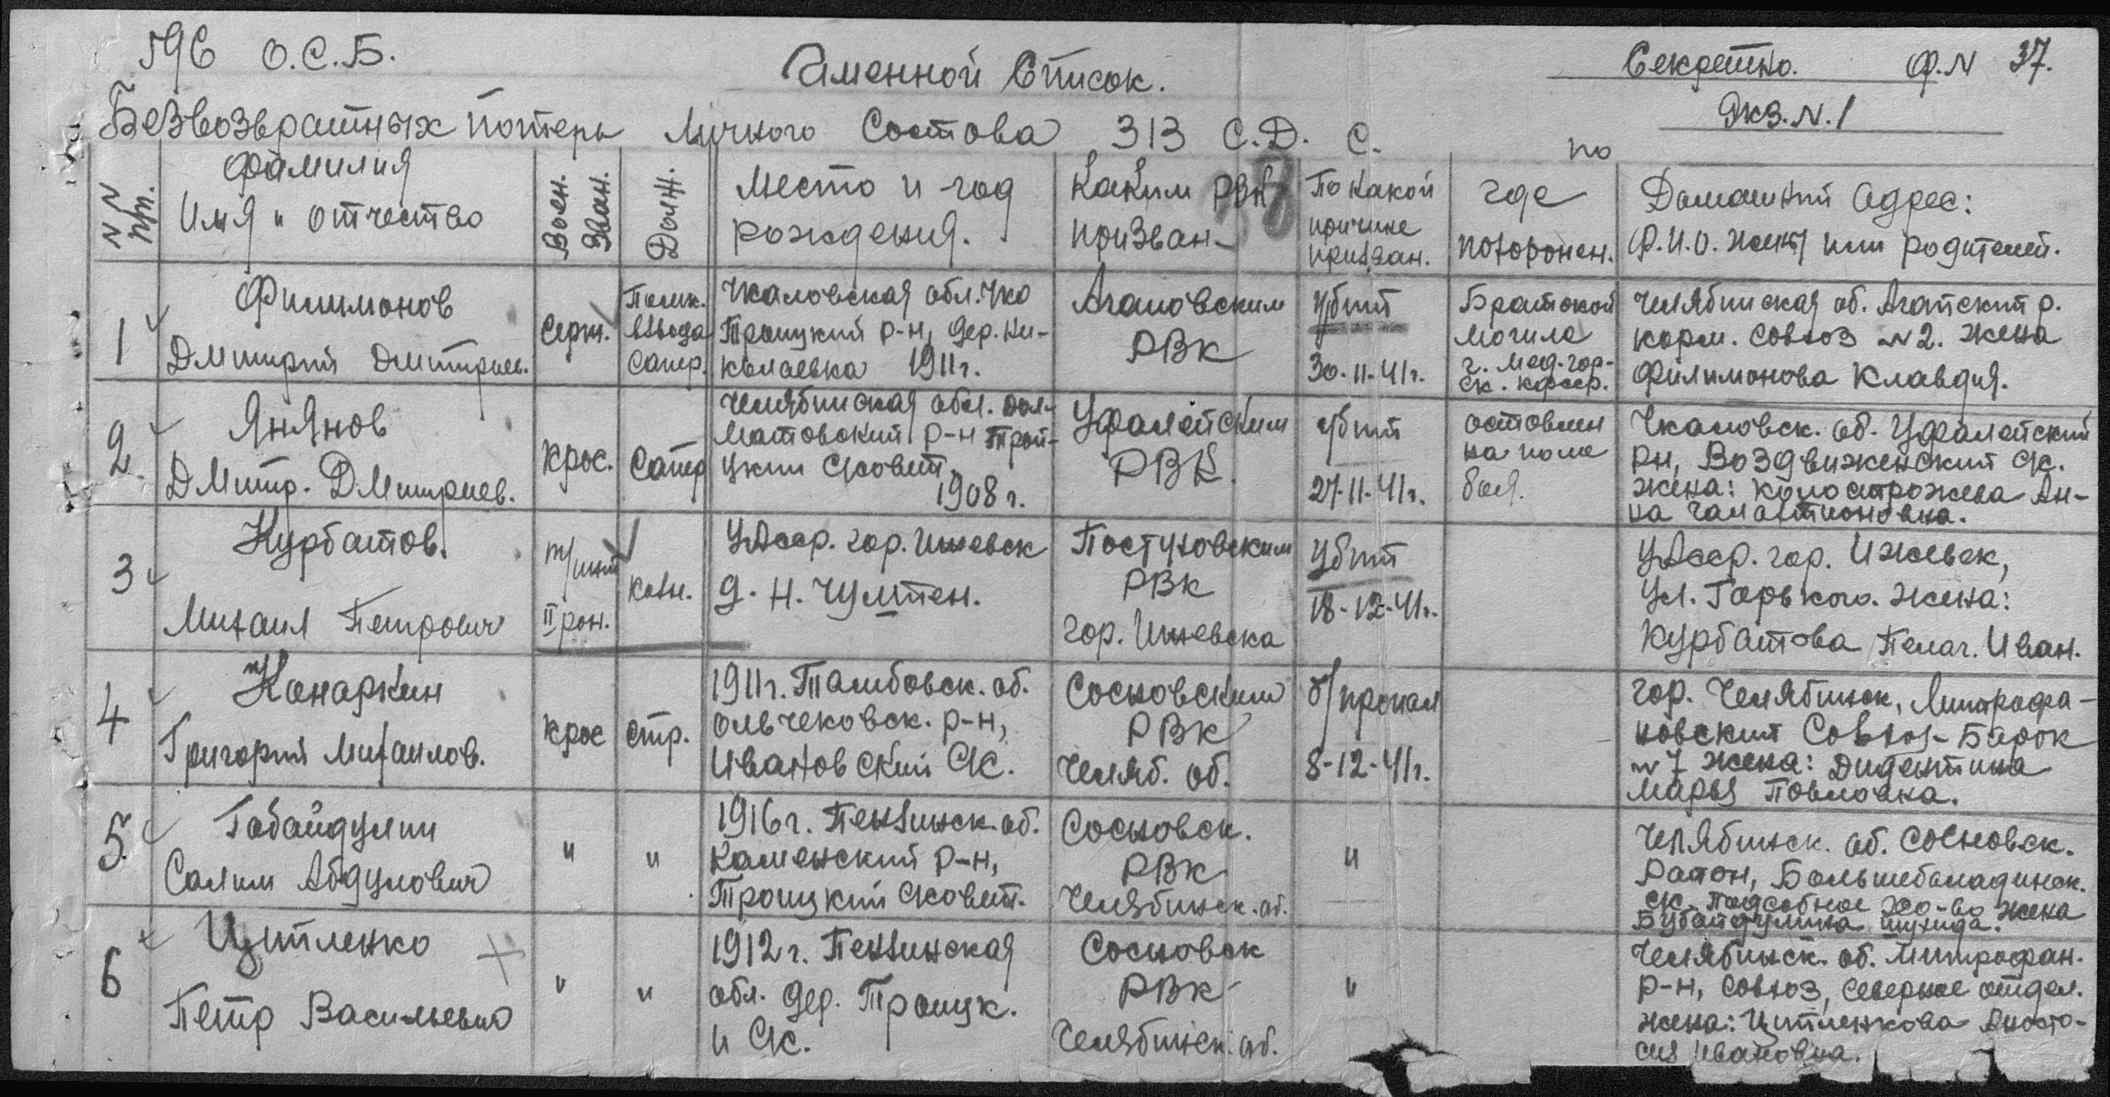 596 О.С.Б.
Именной Список.
Секретно. Ф.N 37.
Экз.N.1
Безвозвратных потерь личного Состова 313 С.Д. с. по
N N п/п.
Фамилия
Имя и отчество
Воен. Зван.
Долж.
Место и год
рождения.
Каким РВК
призван
По какой
причине
где
похоронен.
Домашний адрес:
Ф.И.О. жены или родителей.
1
Филимонов
Дмитрий Дмитриев.
Серж.
Помк.
взвода
Сапер.
Чкаловская обл. Чка
Троицкий р-н, дер. Ни-
колаевка 1911г.
Агаповским
РВК
Убит
30-11-41г.
Братской
могиле
г. Мед.гор-
ск. кфсср.
Челябинская об. Агапский р.
корм. Совхоз N2. жена
Филимонова Клавдия.
2
Янянов
Дмитр. Дмитриев.
Крос.
Сапер
Челябинская обл. Дол-
матовский р-н Трои-
цкий с/совет,
1908г.
Уфалейским
РВК.
убит
27-11-41г.
оставлен
на поле
боя.
Чкаловск. об. Уфалейский
рн, Воздвиженский с/с.
жена: Колосторожева Ан-
на Галактионовна.
3
Курбатов.
Михаил Петрович
т/инт
II ран.
Ковн.
УАсср. гор. Ижевск
д. Н. Чултен.
Пастуховским
РВК
гор. Ижевска
Убит
18-12-41г.
УАсср. гор. Ижевск,
Ул. Горького. жена:
Курбатова Пелаг. Иван.
4
Конаркин
Григорий Михаилов.
Крос
стр.
1911г. Тамбовск. об.
р-н,
Ивановский с/с.
Сосновским
РВК
Челяб. об.
б/пропал
8-12-41г.
гор. Челябинск, Митрофа-
новский Совхоз- Барок
N7 жена:
Марья Повловна.
5.
Габайдулин
Салим Абдулович
"
"
1916г. Пензинск. об.
Каменский р-н,
Троицкий с/совет.
Сосновск.
РВК
Челябинск. об.
"
Челябинск. об. Сосновск.
Район, Большебаладинск.
с/с. Подсобное хо-во жена
Бубайдулина
6
Цитленко
Петр Васильевич
"
"
1912г. Пензинская
обл. дер. Троицк.
и с/с.
Сосновск
РВК
Челябинск. об.
"
Челябинск. об. Митрофан.
р-н, совхоз, северное отдел.
жена: Цитленкова Анаста-
сия Ивановна.